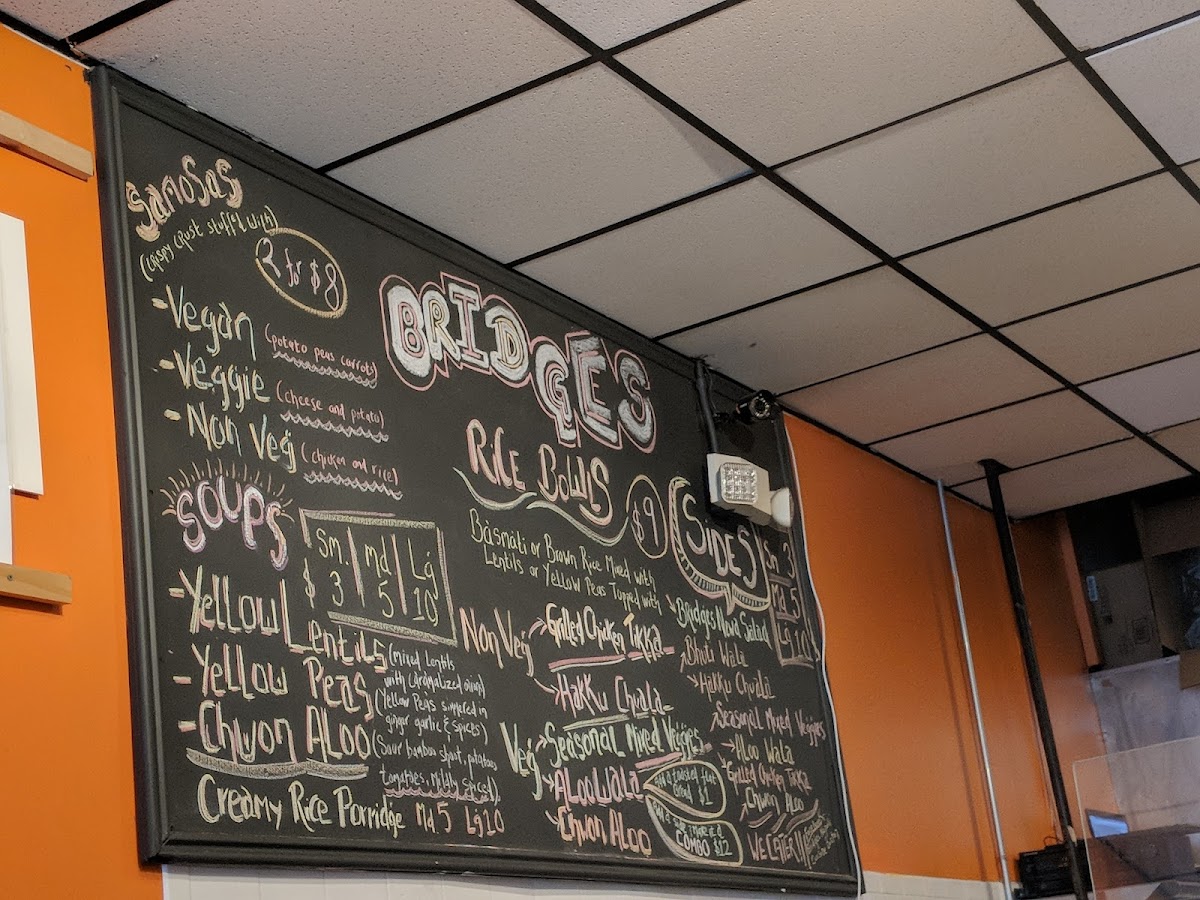 Samosas
(Crispy Crust stuff'd with)
2 for $8
-Vegan (potato peas carrots)
-Veggie (cheese and potato)
-Non Veg (chicken and rice)
SOUPS
Sm. md Lg
$ 3 5 10
-Yellow Lentils (mixed lentils
with caramalized onion)
-Yellow Peas (Yellow Peas simmered in
ginger garlic & spices)
-Chwon Aloo (Sour bamboo shoot, potatoes
tomatoes, Mildly Spiced)
Creamy Rice Porridge Md 5 Lg 10
BRIDGES
RICE BOWLS $9
Basmati or Brown Rice Mixed with
Lentils or Yellow Peas Topped with
Non Veg
Grilled Chicken Tikka
Hakku Chuala
Veg
Seasonal Mixed Veggies
Aloo Wala
Chwon Aloo
Add a twisted flat
bread $1
COMBO $12
SIDES
Sm 3
Md 5
Lg 10
Bridges Nwa Salad
Bhuti Wala
Hakku Chuala
Seasonal Mixed Veggies
Aloo Wala
Grilled Chicken Tikka
Chwon Aloo
WE CATER!!